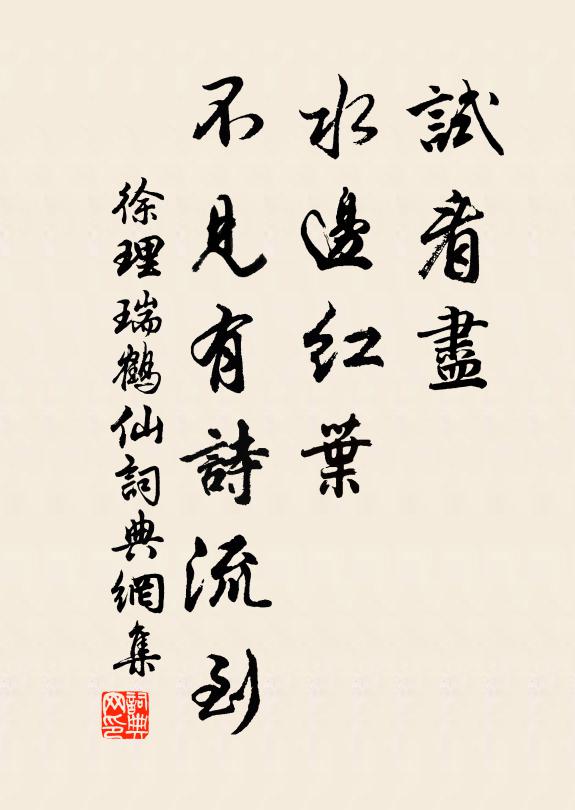 試看盡
水邊紅葉
不見有詩流到
徐理瑞鶴仙詞典網集
詞典網印